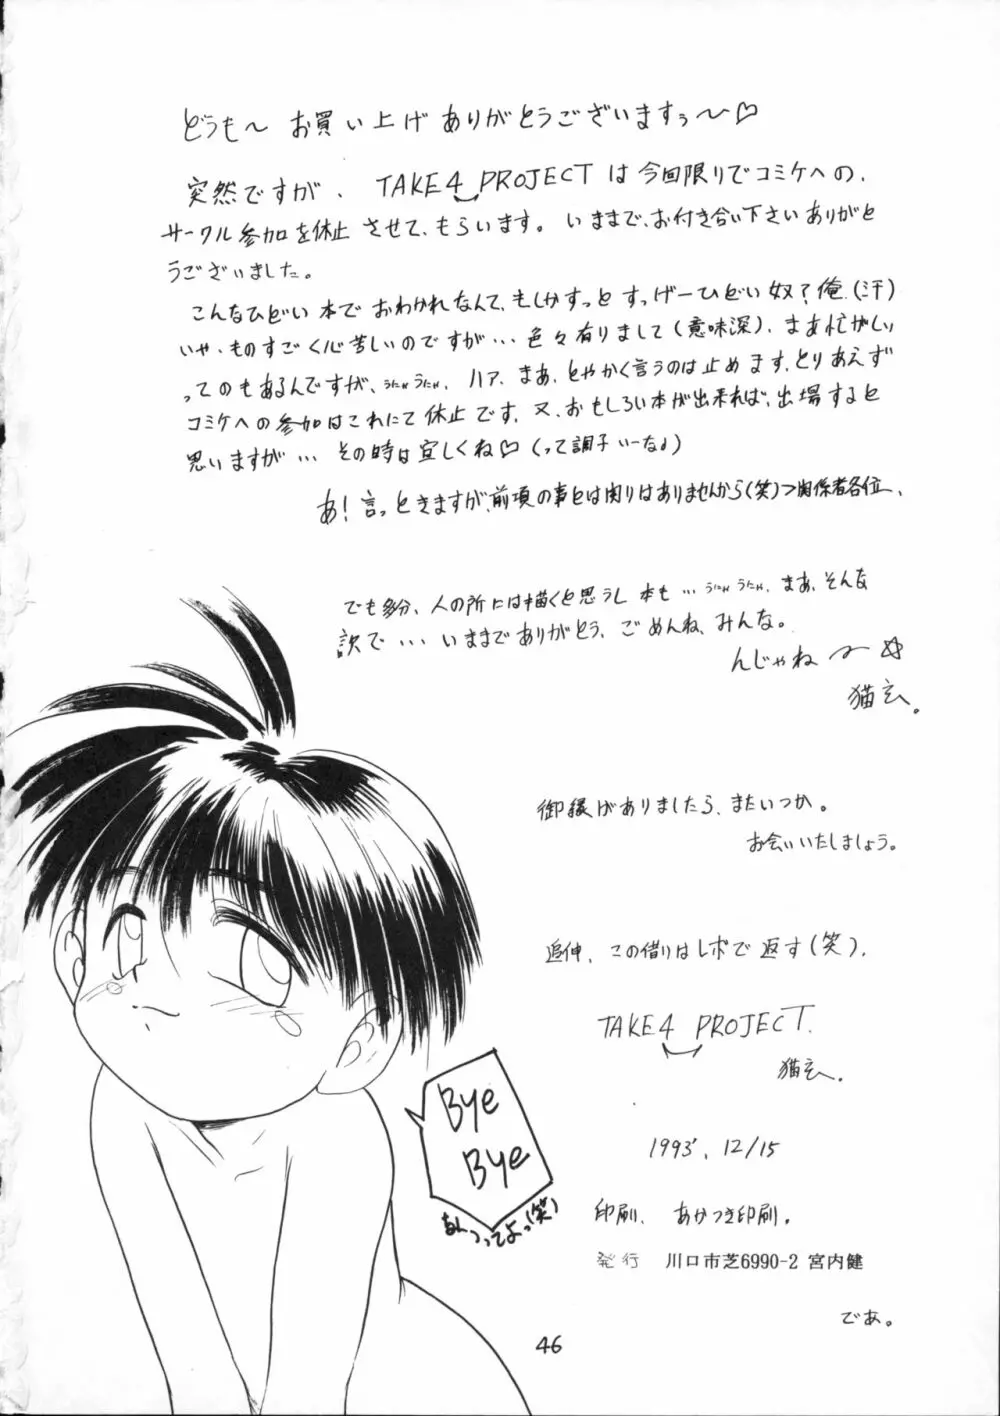 どうも〜 お買い上げありがとうございますぅ〜♡
突然ですが、TAKE4 PROJECTは今回限りでコミケへの、
サークル参加を休止させて、もらいます。いままで、お付き合い下さいありがと
うございました。
こんなひどい本でおわかれなんて、もしかすっとすっげーひどい奴?俺(汗)
いや、ものすごく心苦しいのですが…色々有りまして(意味深)、まあ忙がしい
ってのもあるんですが、うにゃうにゃ、ハァ、まあ、とやかく言うのは止めます、とりあえず
コミケへの参加はこれにて休止です、又、おもしろい本が出来れば、出場すると
思いますが…その時は宜しくね♡(って調子いーな♪)
あ!言っときますが、前項の事とは関りはありませんから(笑)>関係者各位、
でも多分、人の所には描くと思うし本も…うにゃうにゃ、まあ、そんな
訳で…いままでありがとう、ごめんね、みんな。
んじゃね〜☆
猫玄。
御縁がありましたら、またいつか。
お会いいたしましょう。
追伸、この借りはレボで返す(笑)、
TAKE4 PROJECT.
猫玄。
Bye
Bye
なんつってよっ(笑)
1993'. 12/15
印刷、あかつき印刷。
発行 川口市芝6990-2 宮内健
であ。
46